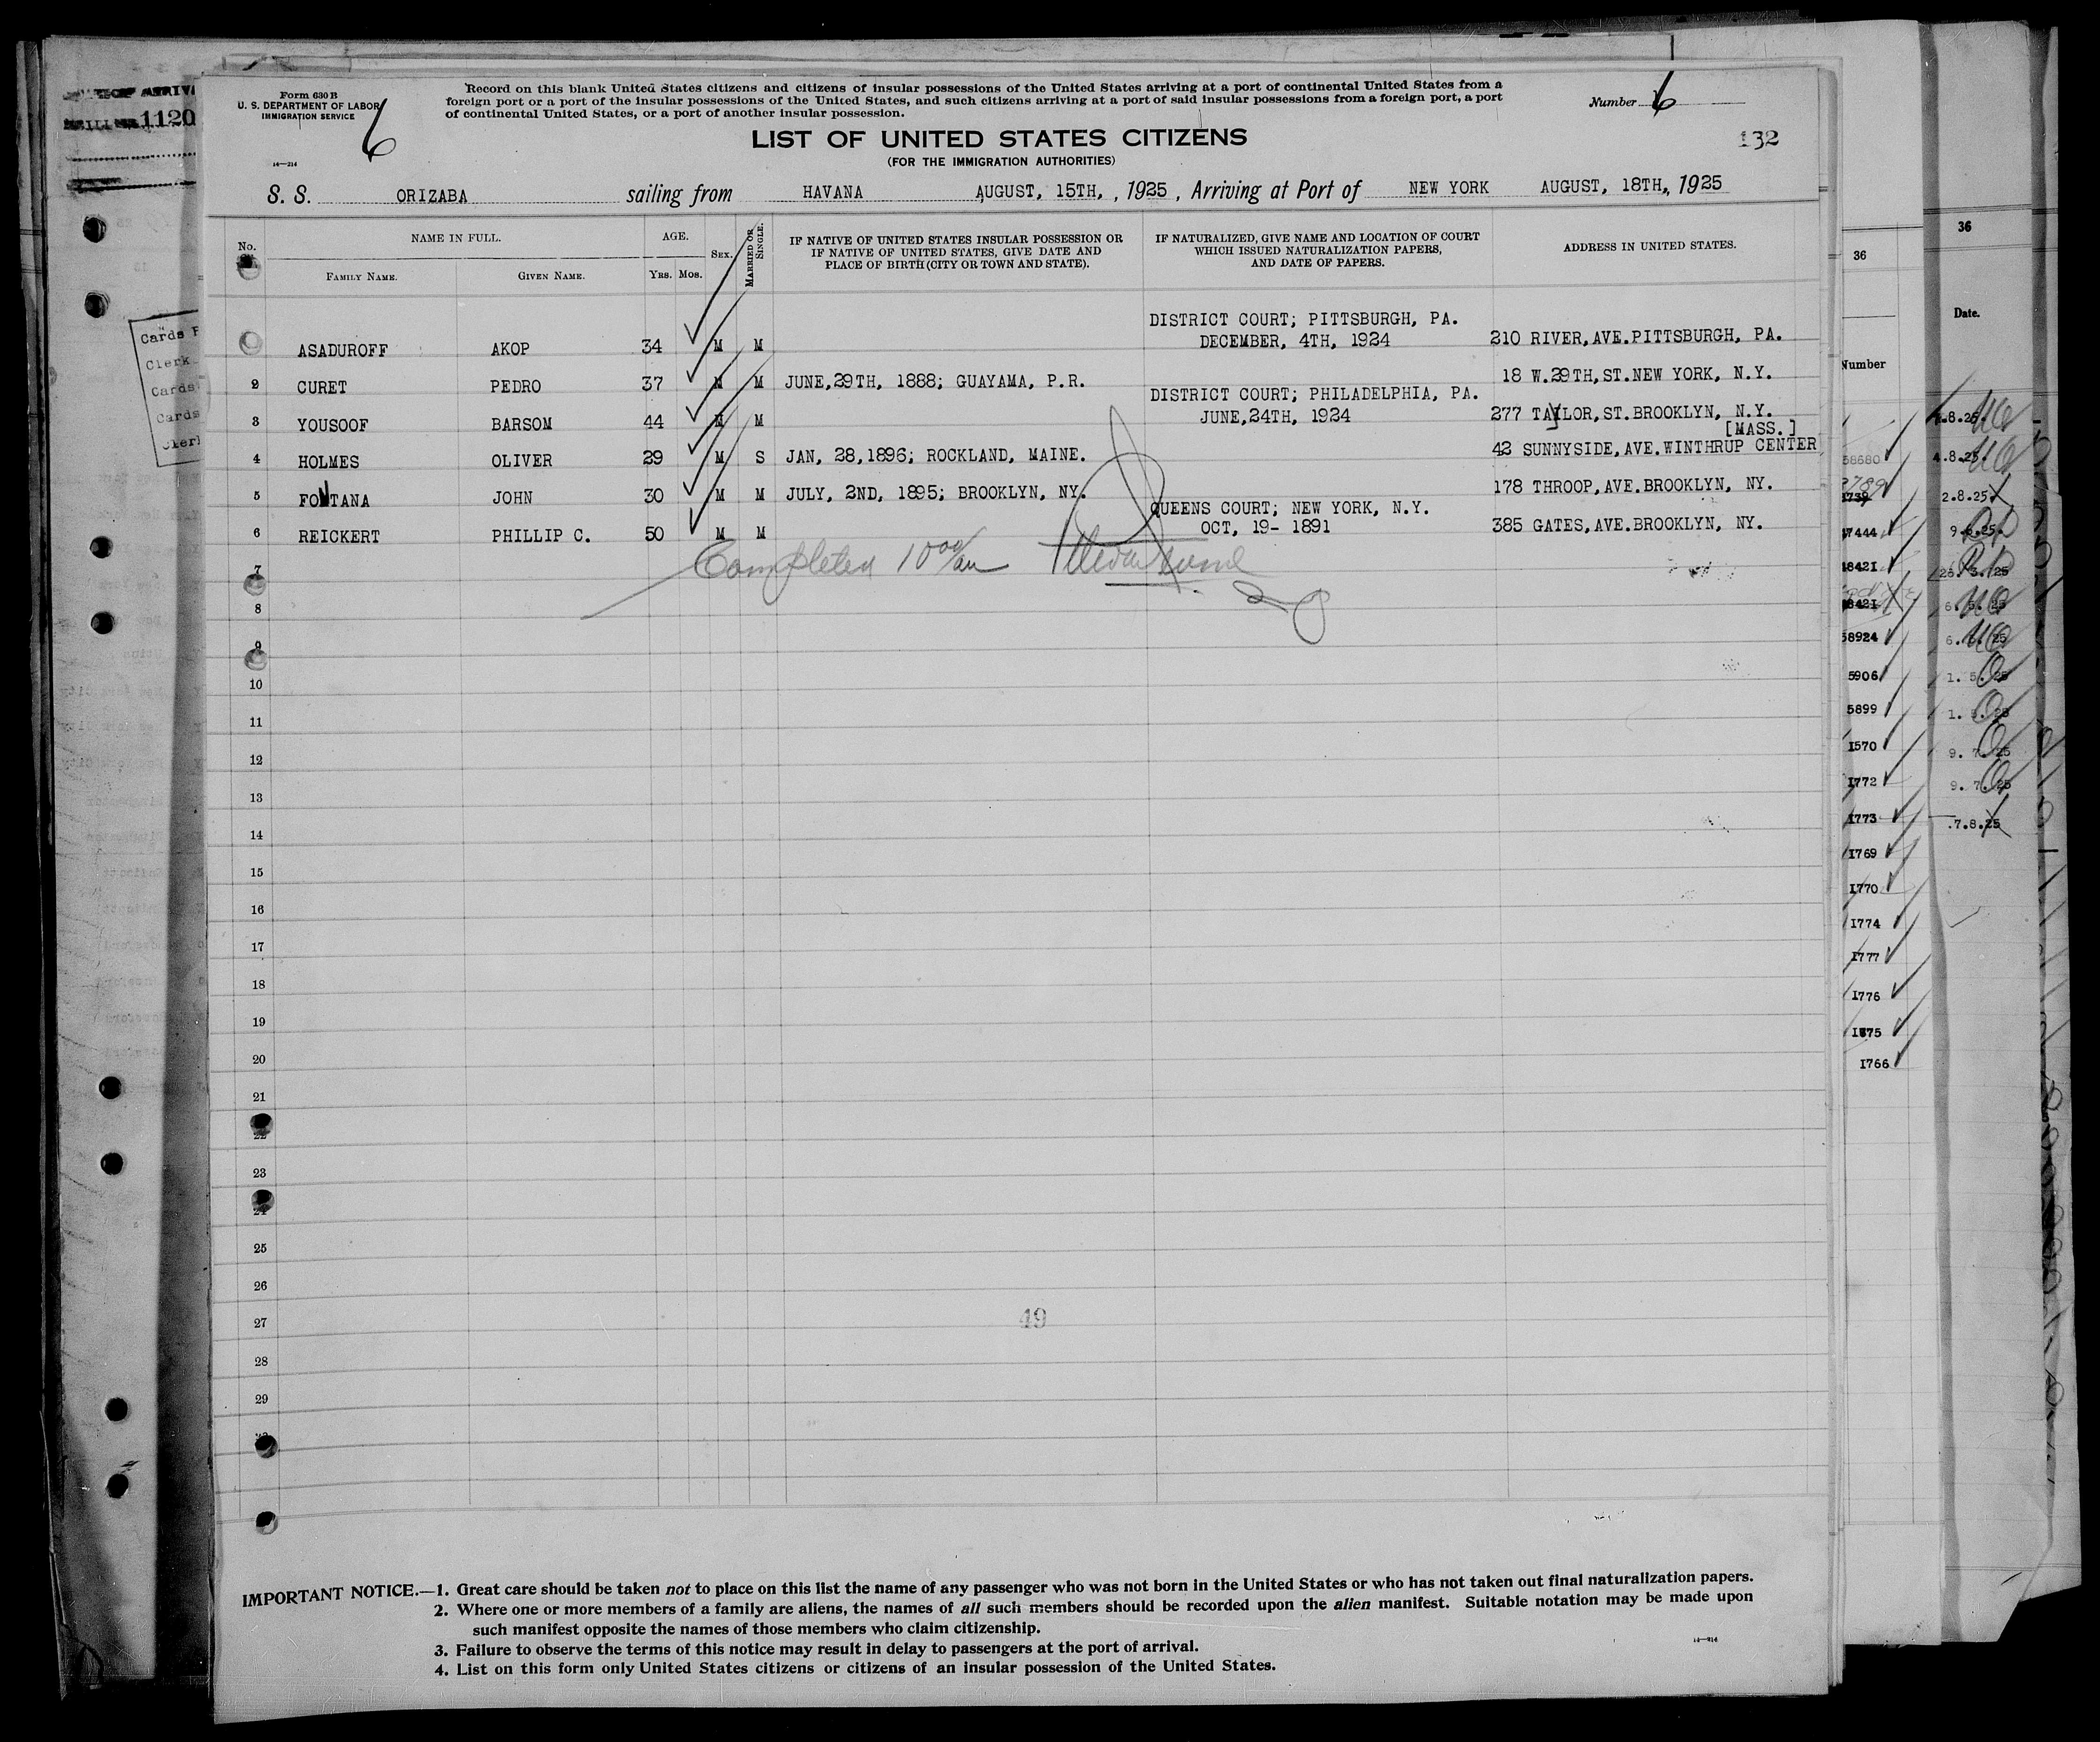 Form 630 B
U. S. DEPARTMENT OF LABOR
IMMIGRATION SERVICE
6
Record on this blank United States citizens and citizens of insular possessions of the United States arriving at a port of continental United States from a
foreign port or a port of the insular possessions of the United States, and such citizens arriving at a port of said insular possessions from a foreign port, a port
of continental United States, or a port of another insular possession.
Number 6
LIST OF UNITED STATES CITIZENS
(FOR THE IMMIGRATION AUTHORITIES)
132
14—214
S. S. ORIZABA sailing from HAVANA AUGUST, 15TH, , 1925 , Arriving at Port of NEW YORK AUGUST, 18TH,, 1925
No.
NAME IN FULL.
FAMILY NAME.
GIVEN NAME.
AGE.
Yrs. Mos.
SEX.
MARRIED OR SINGLE.
IF NATIVE OF UNITED STATES INSULAR POSSESSION OR
IF NATIVE OF UNITED STATES, GIVE DATE AND
PLACE OF BIRTH (CITY OR TOWN AND STATE).
IF NATURALIZED, GIVE NAME AND LOCATION OF COURT
WHICH ISSUED NATURALIZATION PAPERS,
AND DATE OF PAPERS.
ADDRESS IN UNITED STATES.
ASADUROFF AKOP 34 M M DISTRICT COURT; PITTSBURGH, PA.
DECEMBER, 4TH, 1924 210 RIVER,AVE.PITTSBURGH, PA.
2 CURET PEDRO 37 M M JUNE,29TH, 1888; GUAYAMA, P.R. 18 W.29TH,ST.NEW YORK, N.Y.
3 YOUSOOF BARSOM 44 M M DISTRICT COURT; PHILADELPHIA, PA.
JUNE,24TH, 1924 277 TAYLOR,ST.BROOKLYN, N.Y.
[MASS.]
4 HOLMES OLIVER 29 M S JAN, 28,1896; ROCKLAND, MAINE. 42 SUNNYSIDE,AVE.WINTHRUP CENTER
5 FONTANA JOHN 30 M M JULY, 2ND, 1895; BROOKLYN, NY. 178 THROOP,AVE.BROOKLYN, NY.
6 REICKERT PHILLIP C. 50 M M QUEENS COURT; NEW YORK, N.Y.
OCT, 19- 1891 385 GATES,AVE.BROOKLYN, NY.
Completed 10 00/am
7
8
9
10
11
12
13
14
15
16
17
18
19
20
21
22
23
24
25
26
27
49
28
29
IMPORTANT NOTICE.—1. Great care should be taken not to place on this list the name of any passenger who was not born in the United States or who has not taken out final naturalization papers.
2. Where one or more members of a family are aliens, the names of all such members should be recorded upon the alien manifest. Suitable notation may be made upon
such manifest opposite the names of those members who claim citizenship.
3. Failure to observe the terms of this notice may result in delay to passengers at the port of arrival.
4. List on this form only United States citizens or citizens of an insular possession of the United States.
14—214
1120
Cards
Clerk
Cards
Cards
Clerk
36
Number
58680
7444
8421
58924
5906
5899
1570
1772
1773
1769
1770
1774
1777
1776
1775
1766
36
Date.
4.8.25.
2.8.25
1. 5. 25
9. 7. 25
9. 7. 25
.7.8.25